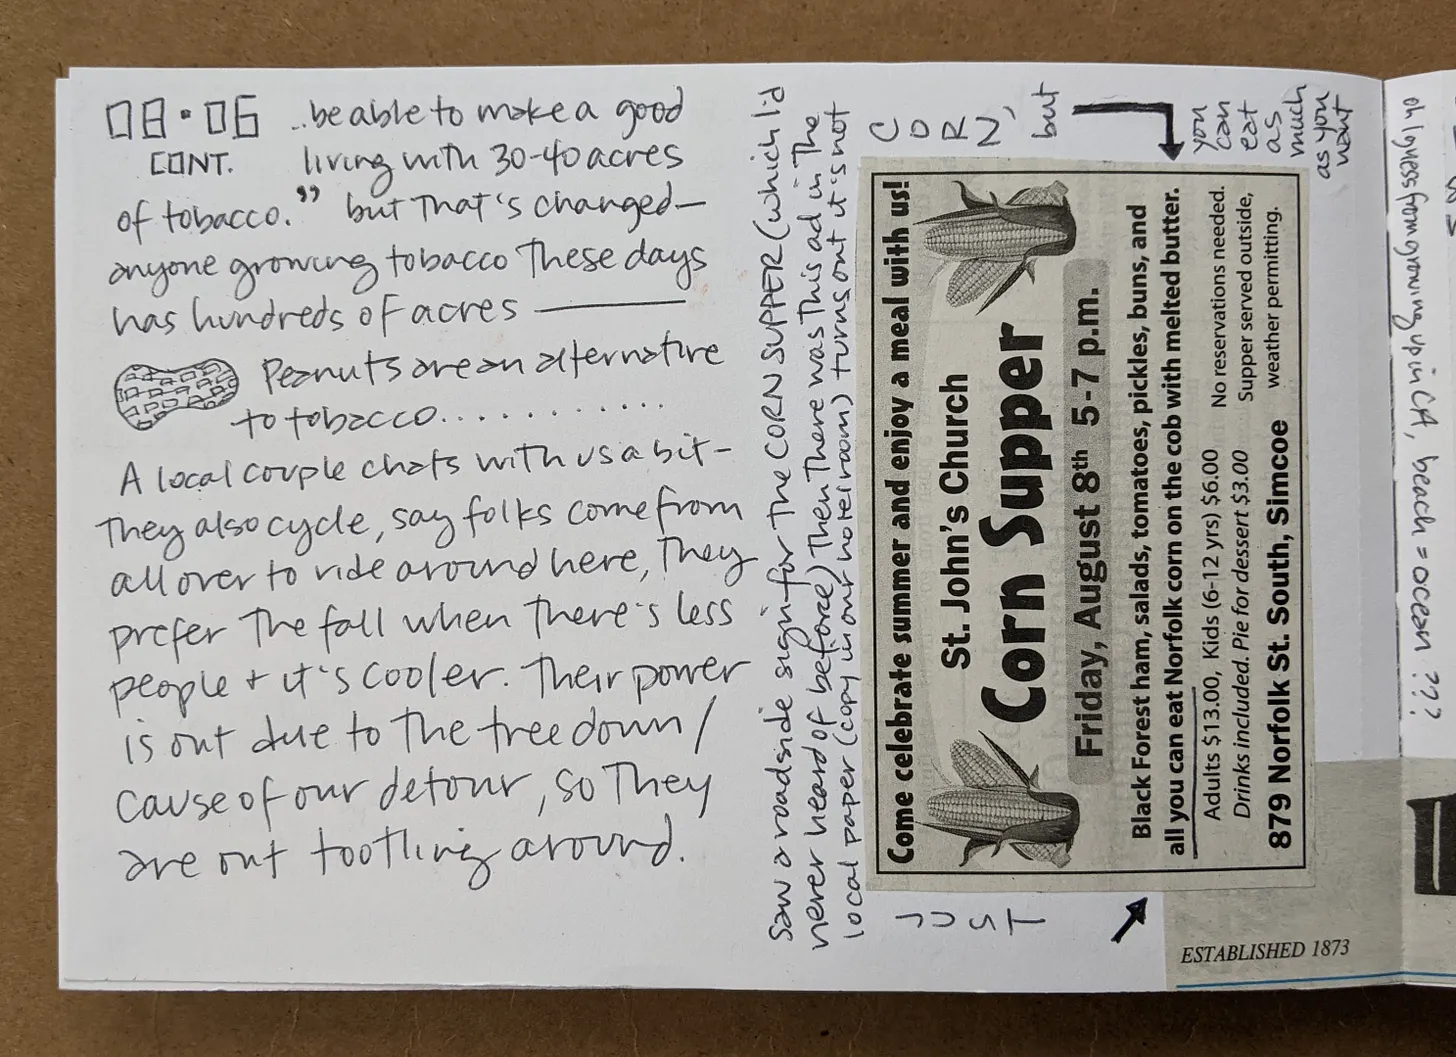 08·06 ...be able to make a good
CONT. living with 30-40 acres
of tobacco." but that's changed—
anyone growing tobacco these days
has hundreds of acres ———
Peanuts are an alternative
to tobacco...........
A local couple chats with us a bit-
They also cycle, say folks come from
all over to ride around here, They
prefer the fall when there's less
people + it's cooler. Their power
is out due to the tree down/
cause of our detour, so they
are out tootling around.
Saw a roadside sign for the CORN SUPPER (which I'd
never heard of before) Then there was this ad in the
local paper (copy in our hotel room) turns out it's not
JUST
CORN, but
you
can
eat
as
much
as you
want
Come celebrate summer and enjoy a meal with us!
St. John's Church
Corn Supper
Friday, August 8th 5-7 p.m.
Black Forest ham, salads, tomatoes, pickles, buns, and
all you can eat Norfolk corn on the cob with melted butter.
Adults $13.00, Kids (6-12 yrs) $6.00
Drinks included. Pie for dessert $3.00
No reservations needed.
Supper served outside,
weather permitting.
879 Norfolk St. South, Simcoe
ESTABLISHED 1873
from growing up in CA, beach = ocean ???